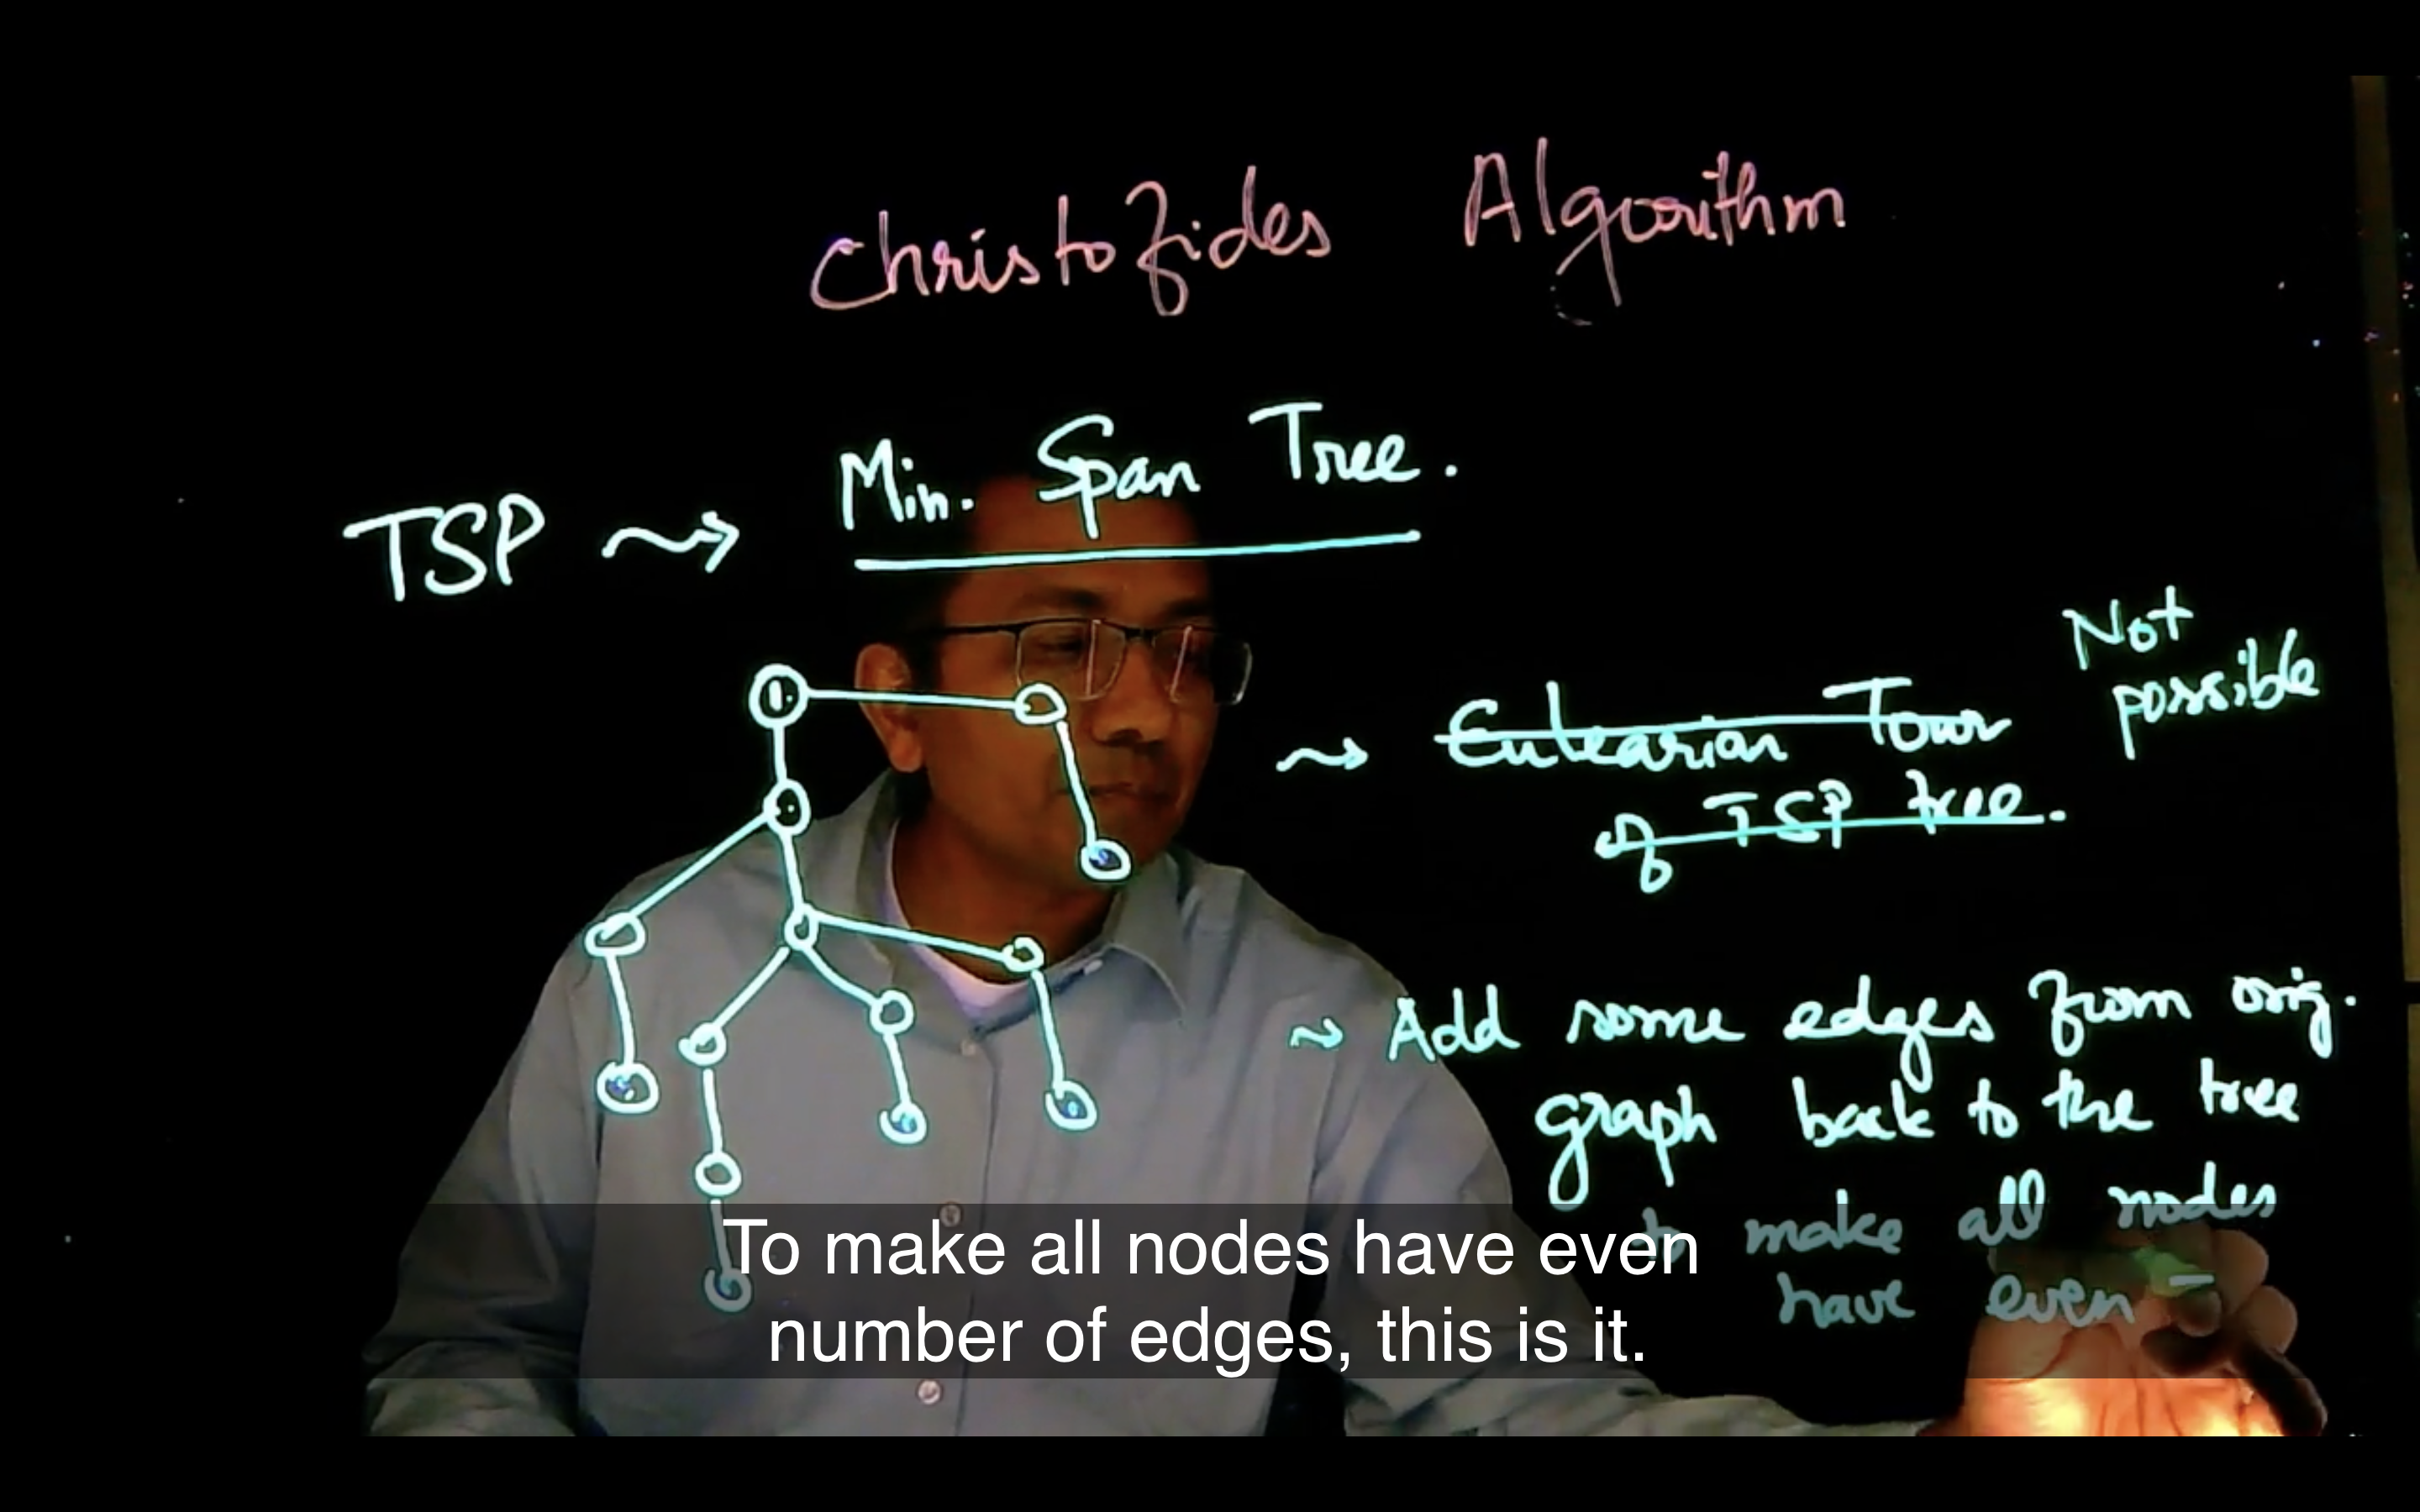 Christofides Algorithm
TSP ⇝ Min. Span Tree.
Not
possible
⇝ Eulearian Tour
of TSP tree.
⇝ Add some edges from orig.
graph back to the tree
to make all nodes
have even
To make all nodes have even
number of edges, this is it.